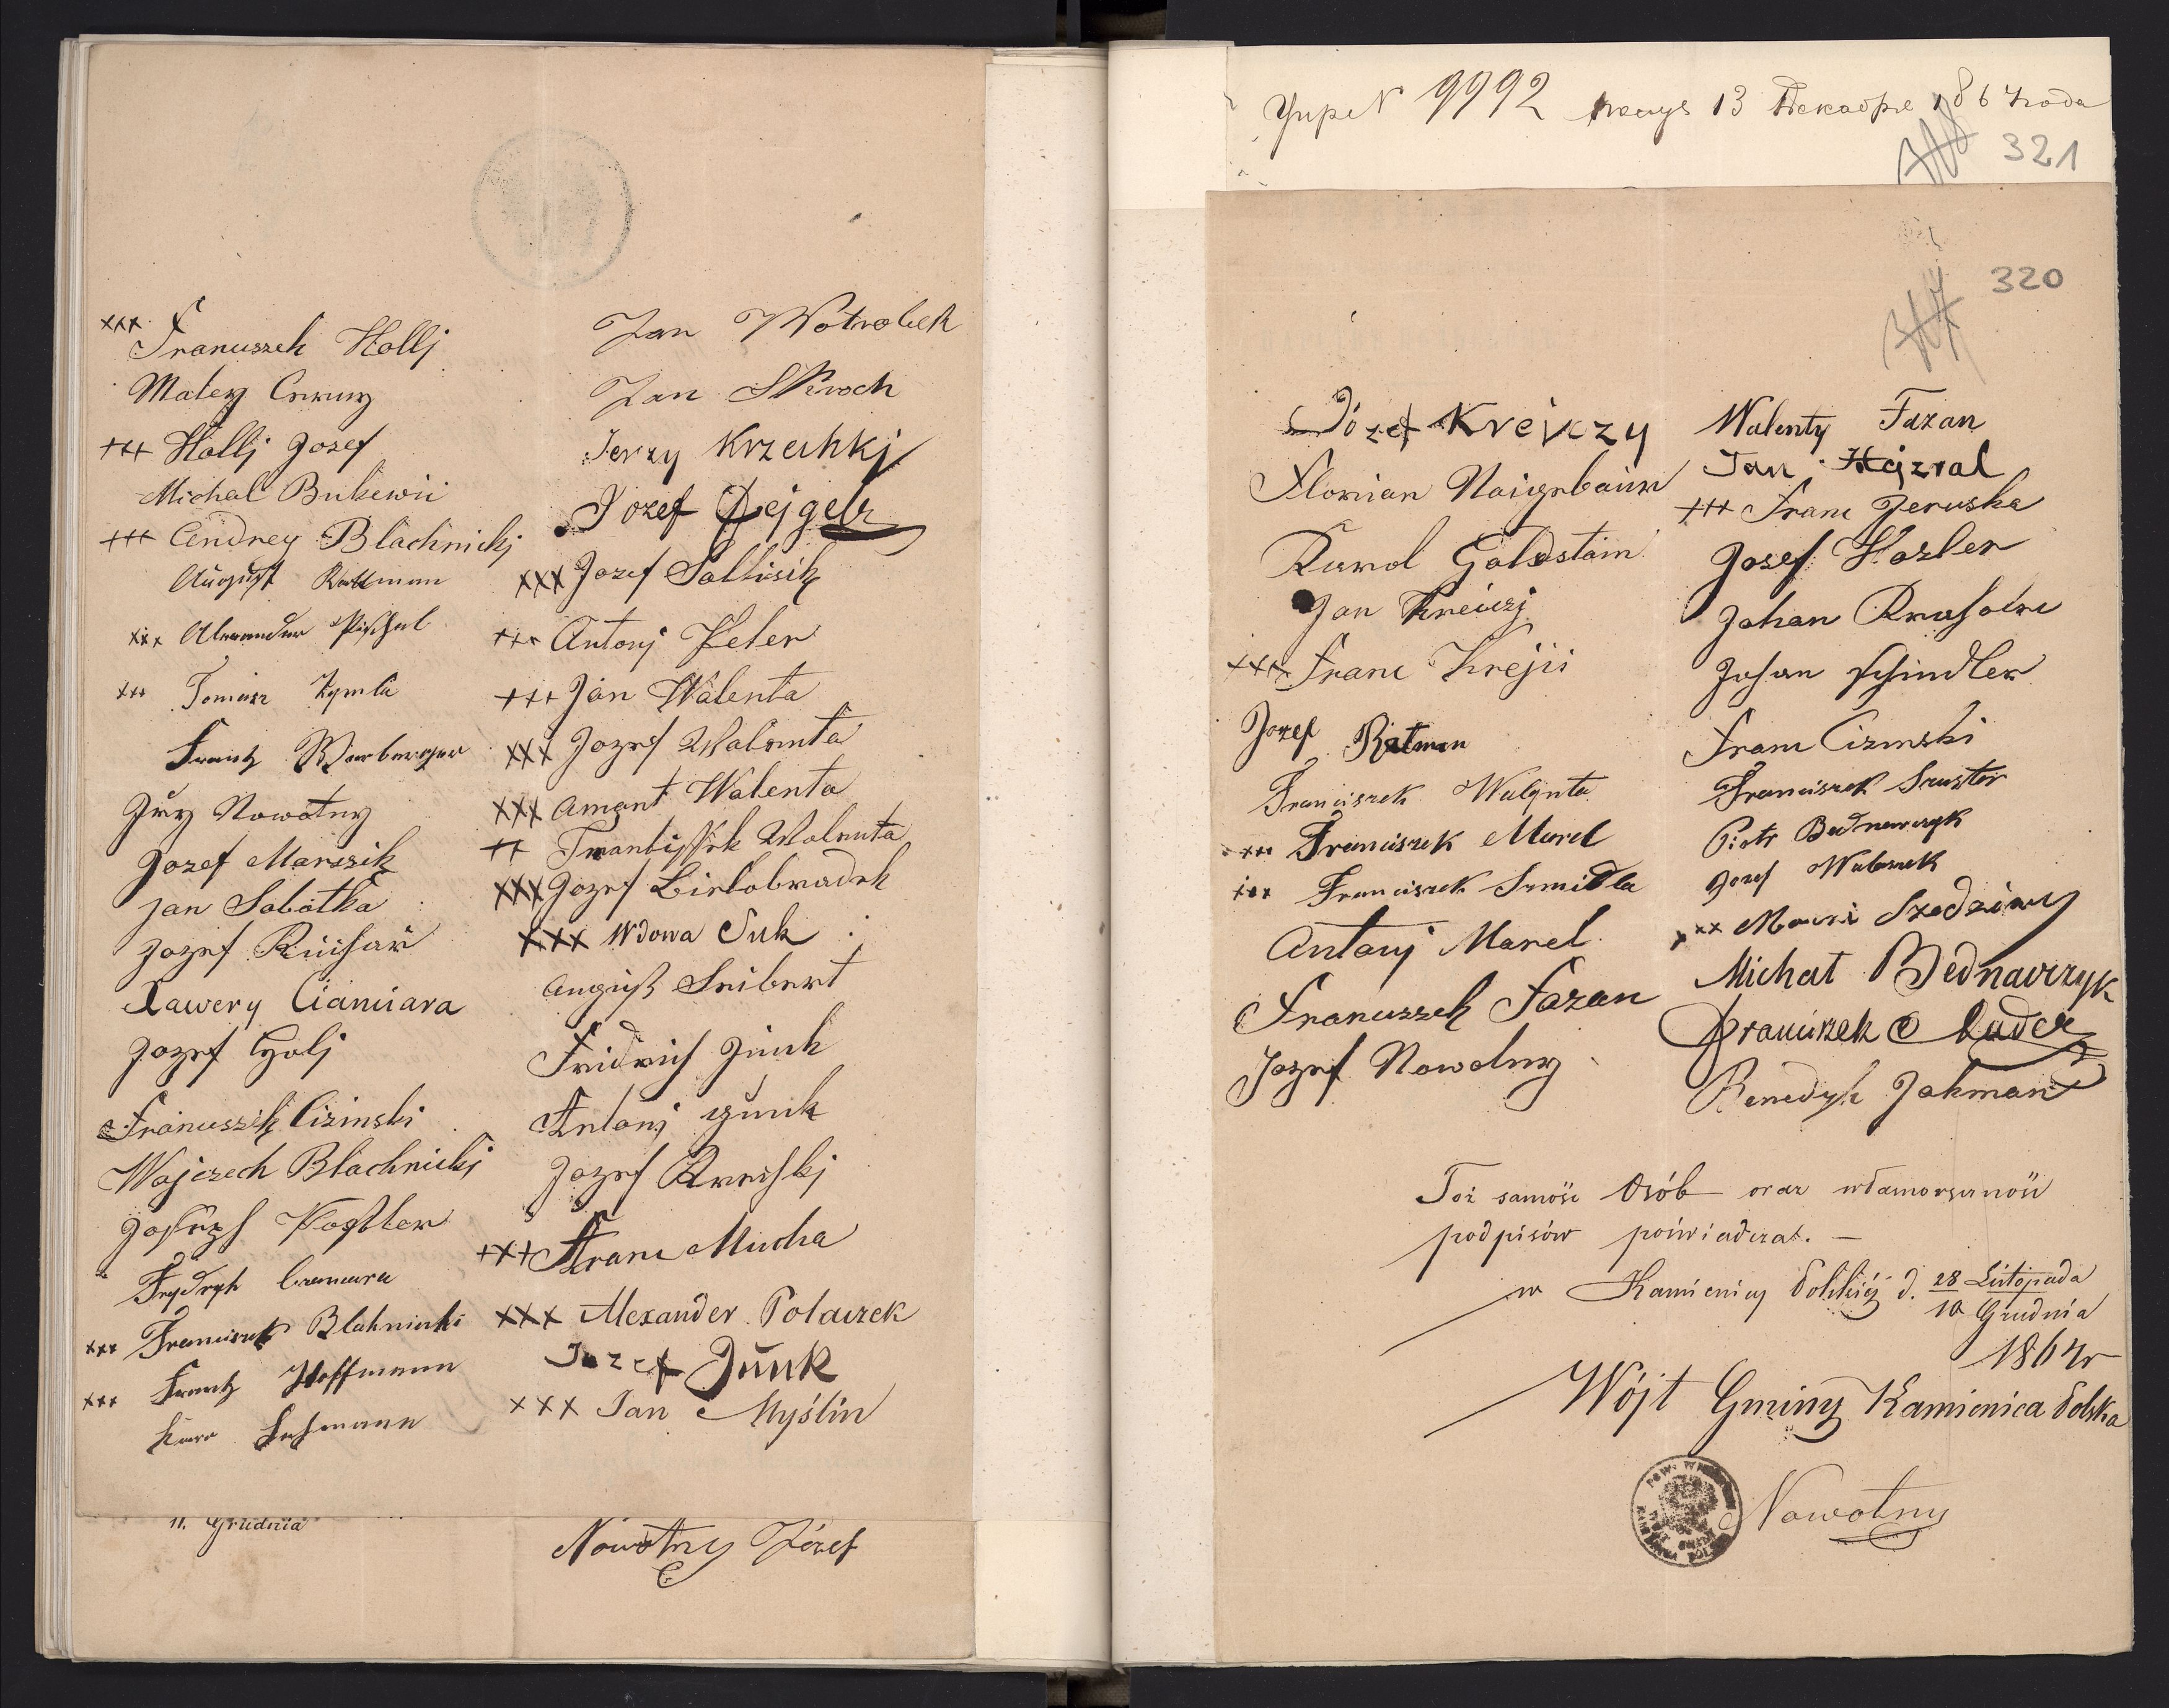 xxx Franciszek Hollj
Matey Czerny
+++ Hollj Josef
Michal Bukewii
+++ Andrey Blachnickj
August Rattman
xxx Alexander Pischel
xxx Tomasz Zymla
Frantz
Jiry Nowotny
Jozef Marszik
Jan Sabotka
Jozef
Xawery Ciamciara
Jozef Holj
Franciszek Cizinski
Wojczech Blachnickj
Joseph Kostler
Frydryh
xxx Franciszek Blahnicki
xxx Frantz Hoffmann
Lehmann
11. Grudnia
Jan Wotrobek
Jan Skwoch
Jerzy Krzechkj
Jozef Fejgelz
xxx Jozef Sallisik
+++ Antonj Keler
+++ Jan Walenta
xxx Jozef Walenta
xxx Amant Walenta
++ Frantissek Walenta
xxx Jozef Bielobradek
xxx Wdowa Suk
August Seibert
Fridrich Junk
Antonj Junk
Jozef
+++ Franc Mucha
xxx Alexander Polaczek
Jozef Junk
xxx Jan Myślin
Nowotny Józef
№ 9992 13 Декабря 1864 года
321
320
Józef Krejczy
Florian Naigebaur
Karol Goldstain
Jan Kreiczj
xxx Franc Krejii
Jozef Ratman
Franciszek Walynta
xxx Franciszek Marel
xxx Franciszek Szmidla
Antonj Marel
Franciszek Fazan
Jozef Nowotny
Walenty Fazan
Jan Hejzral
+++ Franc Jeruska
Josef Hosler
Johan
Johan Schindler
Franc Cizinski
Franciszek Szuster
Piotr Bednarczyk
Jozef Walaszek
xxx Szedziwy
Michał Bednarczyk
Franciszek Duda
Benedykt Jakman
Toż samość Osób oraz własnoręczność
podpisów poświadczał. —
w Kamienicy Polskiéj d. 28 Listopada
10 Grudnia
1864 r
Wójt Gminy Kamienica Polska
Nowotny